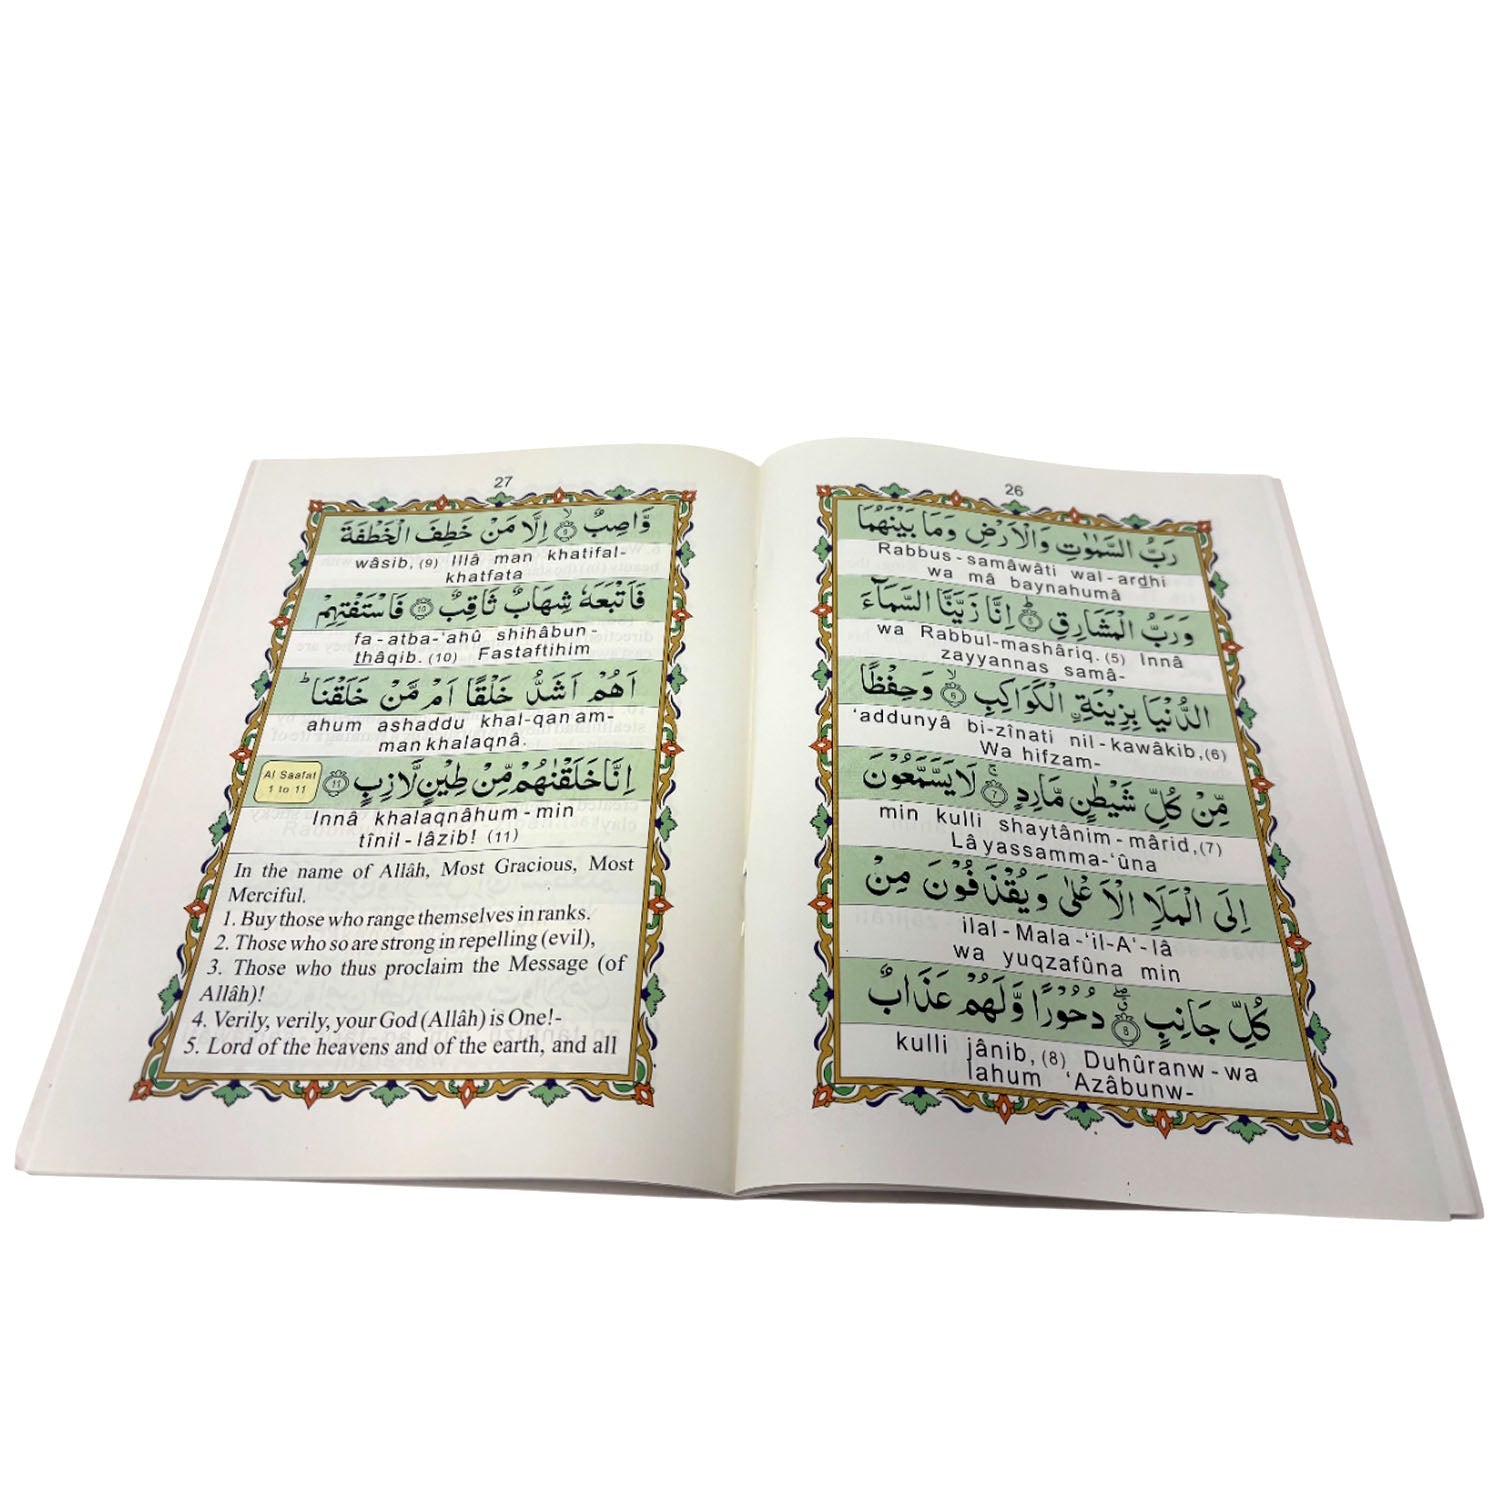 26
رَبُّ السَّمٰوٰتِ وَالْاَرْضِ وَمَا بَيْنَهُمَا
Rabbus-samâwâti wal-ardhi
wa mâ baynahumâ
وَرَبُّ الْمَشَارِقِ ۝٥ اِنَّا زَيَّنَّا السَّمَآءَ
wa Rabbul-mashâriq. (5) Innâ
zayyannas samâ-
الدُّنْيَا بِزِيْنَةِ ۨالْكَوَاكِبِ ۝٦ وَحِفْظًا
'addunyâ bi-zînati nil-kawâkib, (6)
Wa hifzam-
مِّنْ كُلِّ شَيْطٰنٍ مَّارِدٍ ۝٧ لَا يَسَّمَّعُوْنَ
min kulli shaytânim-mârid, (7)
Lâ yassamma-'ûna
اِلَى الْمَلَاِ الْاَعْلٰى وَيُقْذَفُوْنَ مِنْ
ilal-Mala-'il-A'-lâ
wa yuqzafûna min
كُلِّ جَانِبٍ ۝٨ دُحُوْرًا وَّلَهُمْ عَذَابٌ
kulli jânib, (8) Duhûranw-wa
lahum 'Azâbunw-
27
وَّاصِبٌ ۝٩ اِلَّا مَنْ خَطِفَ الْخَطْفَةَ
wâsib, (9) Illâ man khatifal-
khatfata
فَاَتْبَعَهٗ شِهَابٌ ثَاقِبٌ ۝١٠ فَاسْتَفْتِهِمْ
fa-atba-'ahû shihâbun-
thâqib. (10) Fastaftihim
اَهُمْ اَشَدُّ خَلْقًا اَمْ مَّنْ خَلَقْنَا ؕ
ahum ashaddu khal-qan am-
man khalaqnâ.
اِنَّا خَلَقْنٰهُمْ مِّنْ طِيْنٍ لَّازِبٍ ۝١١
Al Saafat
1 to 11
Innâ khalaqnâhum-min
tînil-lâzib! (11)
In the name of Allâh, Most Gracious, Most
Merciful.
1. Buy those who range themselves in ranks.
2. Those who so are strong in repelling (evil),
3. Those who thus proclaim the Message (of
Allâh)!
4. Verily, verily, your God (Allâh) is One!-
5. Lord of the heavens and of the earth, and all